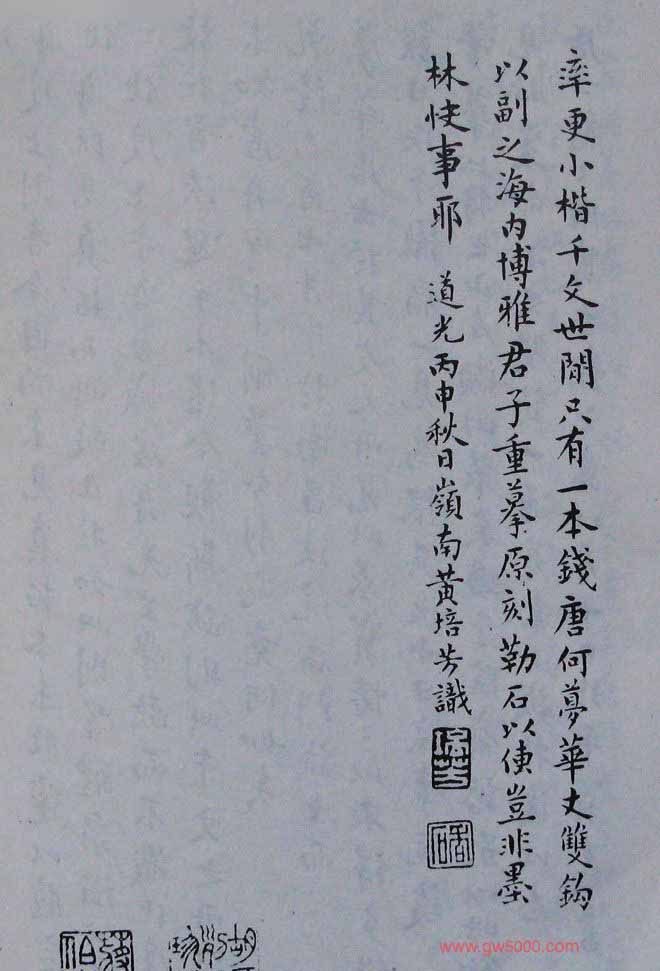 率更小楷千文世間只有一本錢唐何夢華丈雙鉤
以副之海内博雅君子重摹原刻勒石以傳豈非墨
林快事耶 道光丙申秋日嶺南黃培芳識
培芳
www.gw5000.com